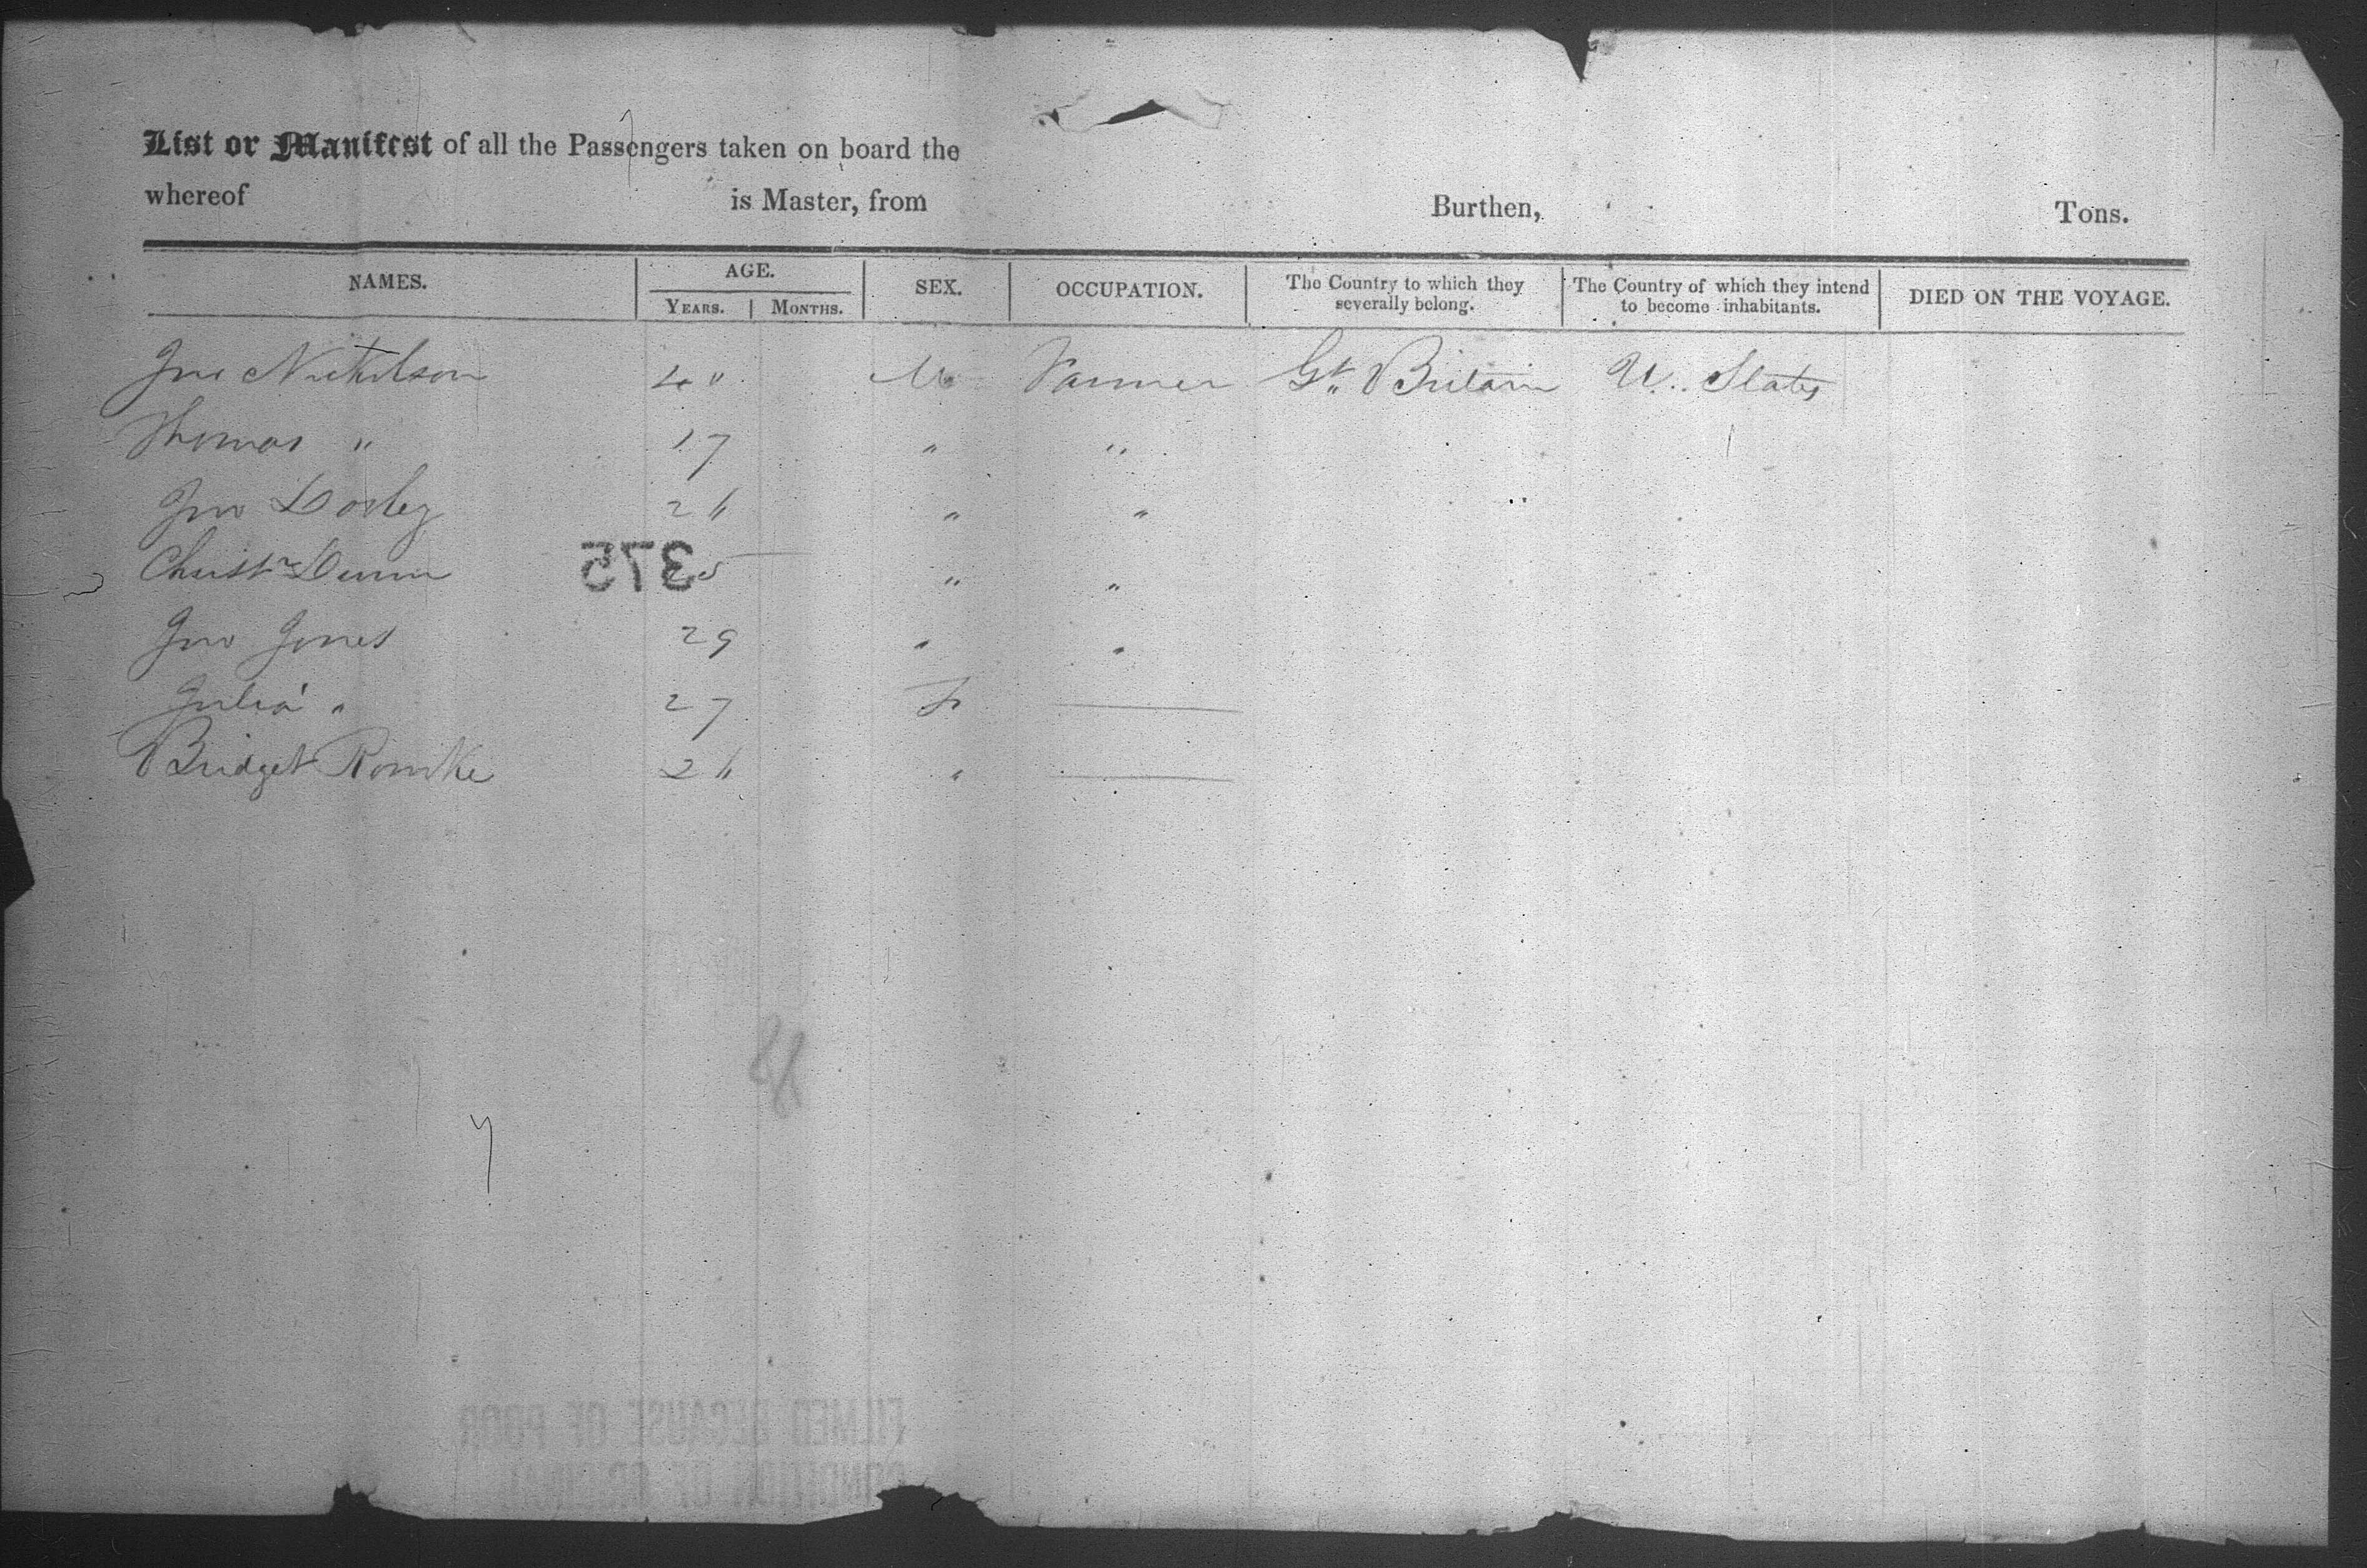 List or Manifest of all the Passengers taken on board the
whereof is Master, from Burthen, Tons.
NAMES. AGE. YEARS. MONTHS. SEX. OCCUPATION. The Country to which they severally belong. The Country of which they intend to become inhabitants. DIED ON THE VOYAGE.
Jno Nicholson 40 M Farmer Gt. Britain U. States
Thomas " 17 " "
Jno 26 " "
Christr Dunn " "
375
Jno Jones 29 " "
Julia " 27 F
Bridget Rourke 26 "
FILMED BECAUSE OF POOR
CONDITION OF ORIGINAL